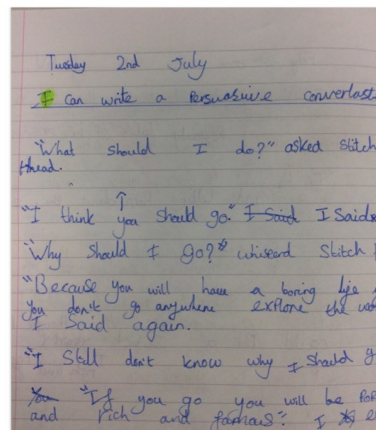 Tuesday 2nd July
I can write a Persuasive
"What should I do?" asked Stitch
thread.
"I think you should go." I Said I Said
"Why should I go?" whiserd Stitch
"Because you will have a boring life
you don't go anywhere explore the
I Said again.
"I Still don't know why I should
You "If you go you will be
and rich and famous". I